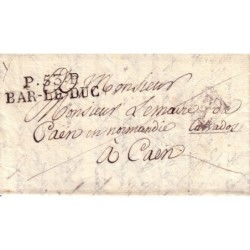 P.53.P
BAR-LE-DUC
A Monsieur
Monsieur Lemaire de
Caën en normandie Calvados
à Caën